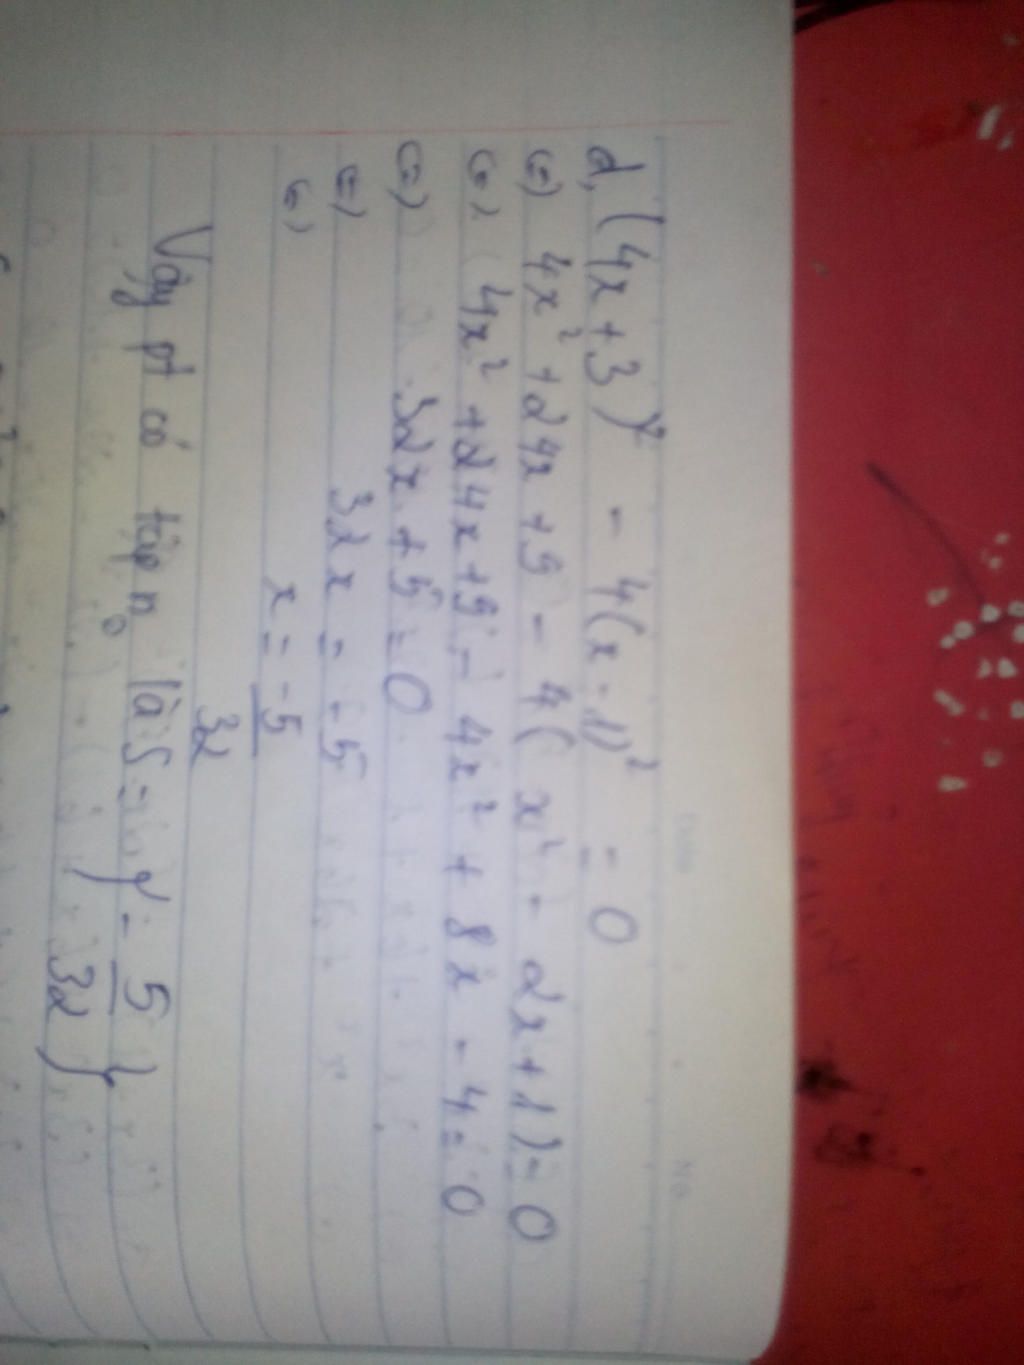 d, (4x + 3)² - 4(x - 1)² = 0
(=) 4x² + 24x + 9 - 4( x² - 2x + 1) = 0
(=) 4x² + 24x + 9 - 4x² + 8x - 4 = 0
(=) 32x + 5 = 0
(=) 32x = -5
(=) x = -5/32
Vậy pt có tập n₀ là S = { - 5/32 }